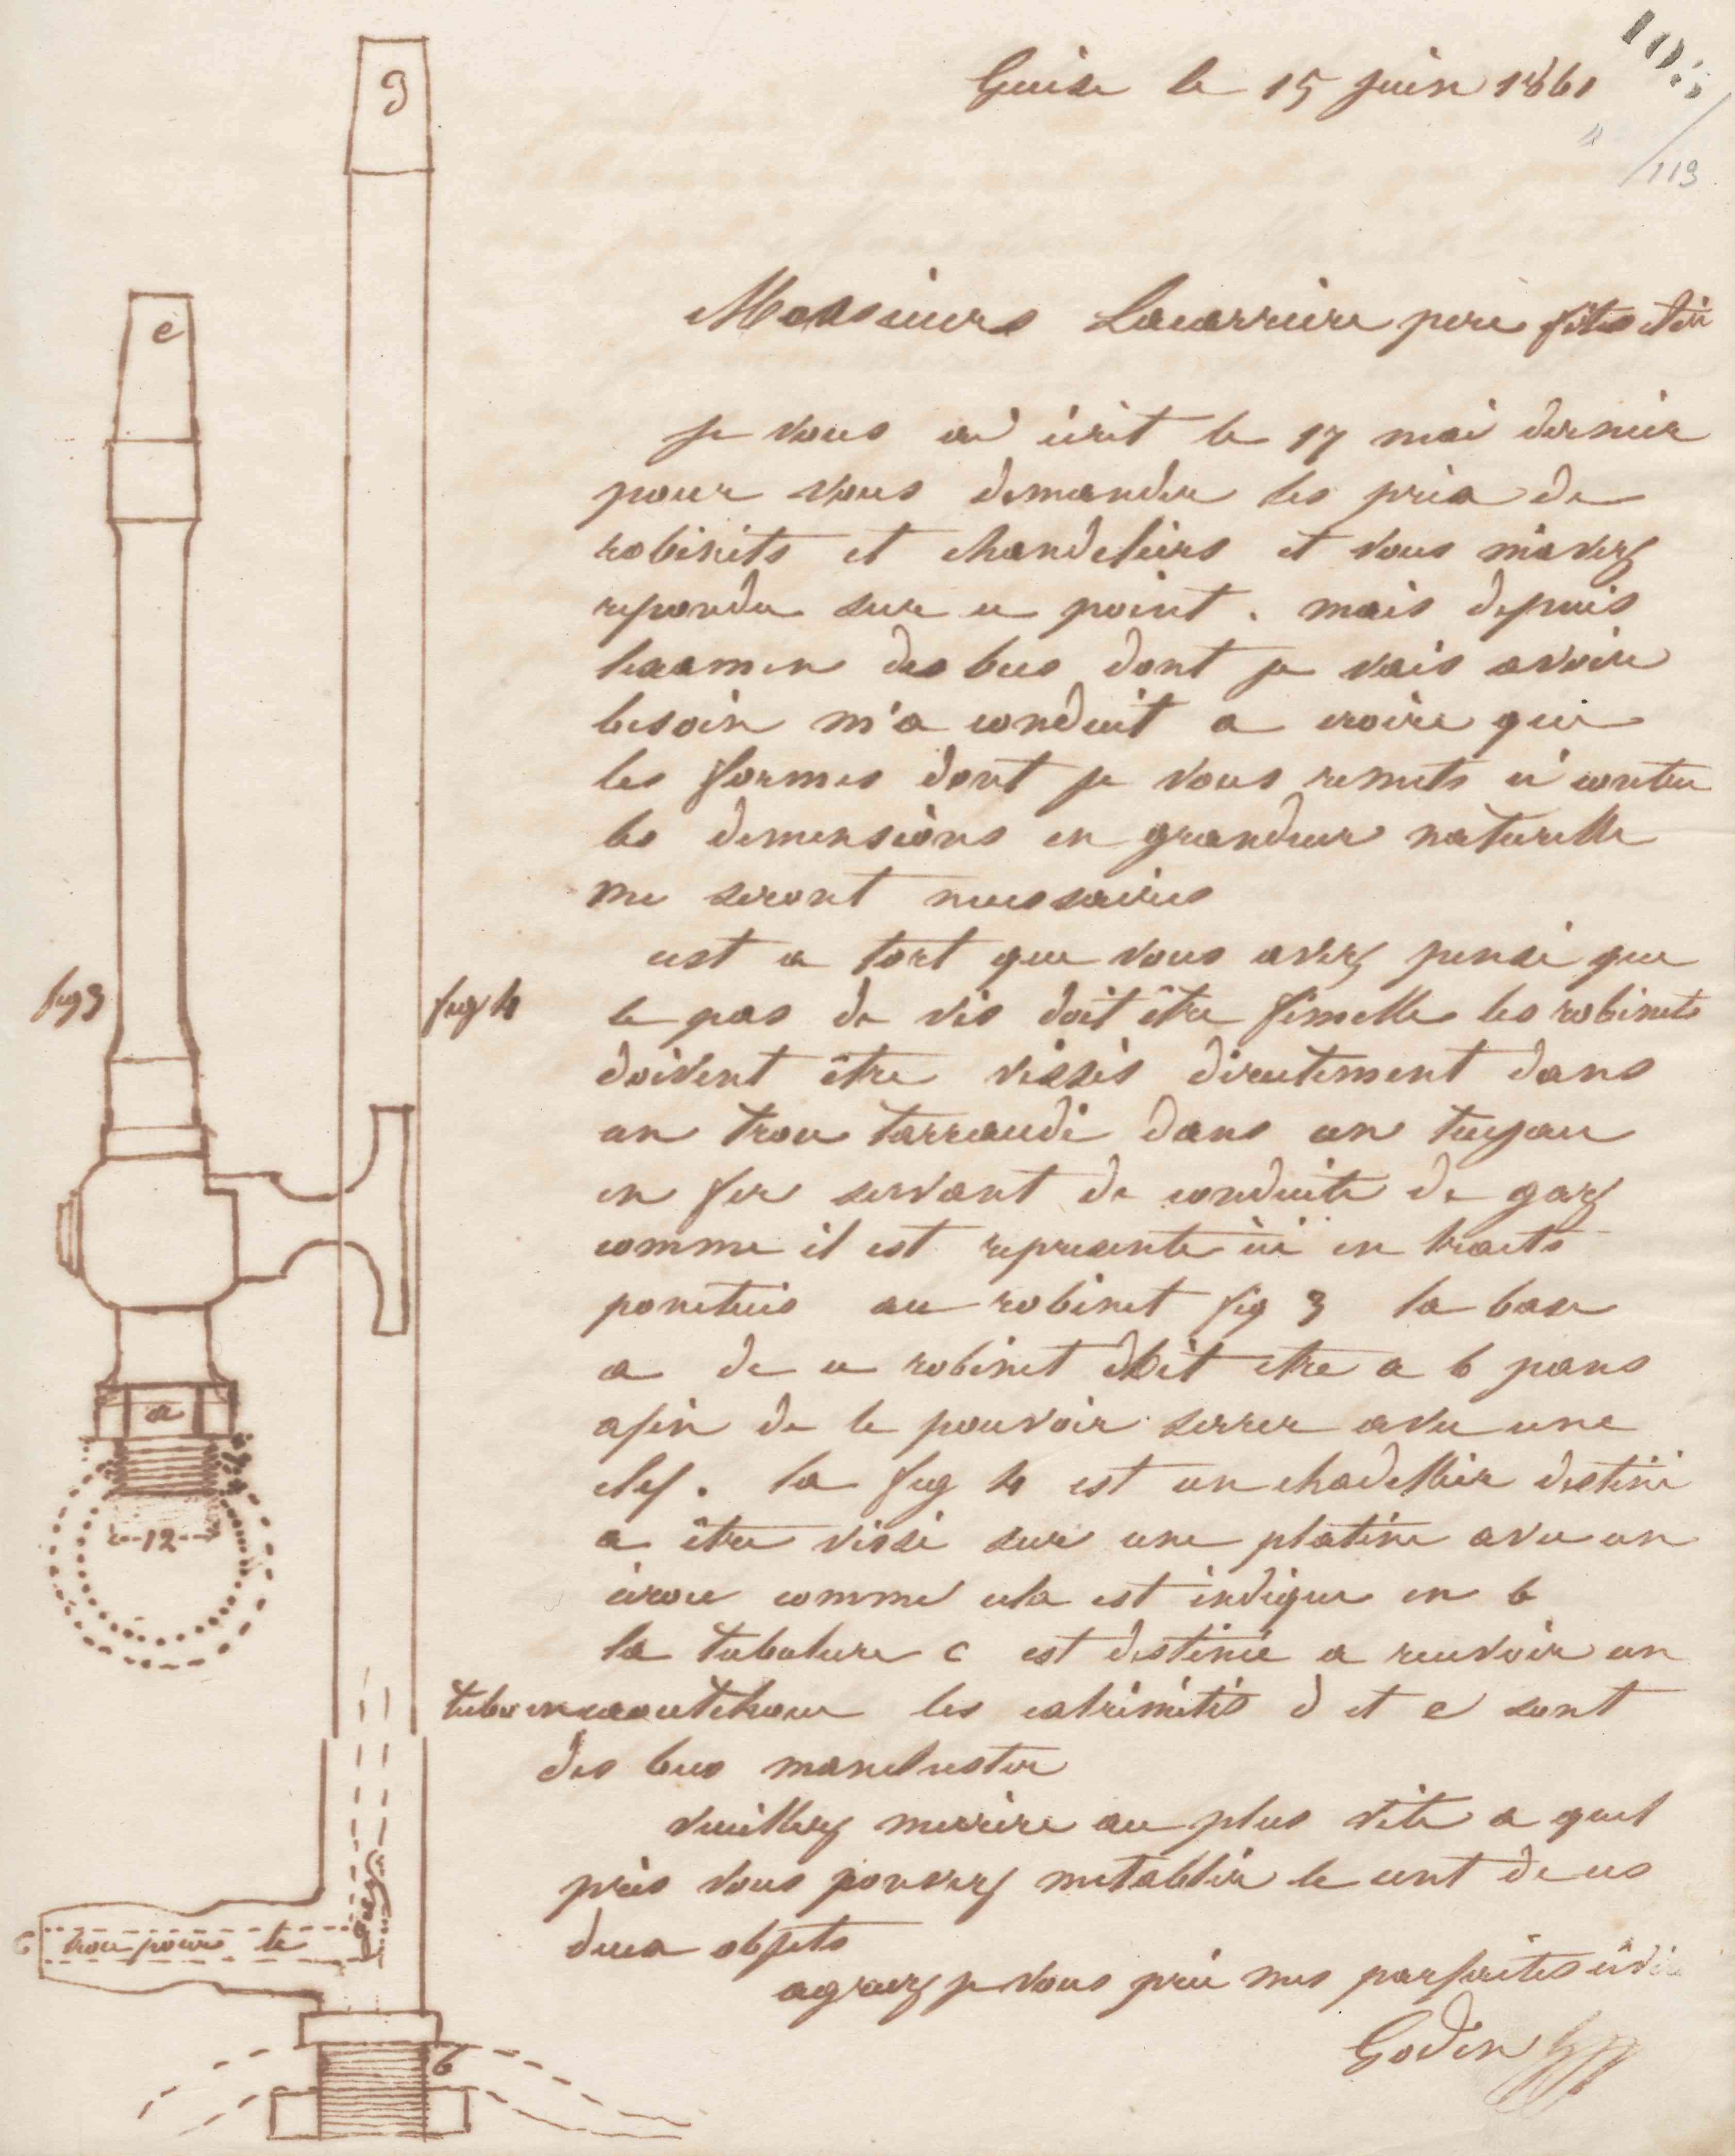 Guise le 15 juin 1861
103
119
Messieurs Lacarriere pere fils et Cie
je vous ai écrit le 17 mai dernier
pour vous demander les prix de
robinets et chandeliers et vous m'avez
repondu sur ce point. mais depuis
lexamen des becs dont je vais avoir
besoin m'a conduit a croire que
les formes dont je vous remets ci contre
les demensions en grandeur naturelle
me seront necessaires
cest a tort que vous avez pensé que
le pas de vis doit être femelle les robinets
doivent être vissés directement dans
un trou tarraudé dans un tuyau
en fer servant de conduite de gaz
comme il est represente ici en traits
ponctués au robinet fig 3 la base
a de ce robinet doit etre a 6 pans
afin de le pouvoir serrer avec une
clef. la fig 4 est un chadellier destiné
a être vissé sur une platine avec un
écrou comme cela est indique en b
la tubulure c est destinée a recevoir un
tube en caoutchouc les extrémités d et e sont
des becs manchester
veuillez mecrire au plus vite a quel
prix vous pouvez metablir le cent de ces
deux objets
agreez je vous prie mes parfaites civi
Godin
d
e
fig 3
fig 4
a
12
c
trou pour le
gaz
b